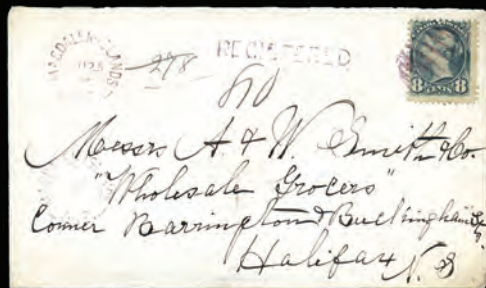 MAGDALEN ISLANDS
278
REGISTERED
8 CENTS 8
810
Messrs A. & W. Smith & Co.
"Wholesale Grocers"
Corner Barrington & Buckingham Sts.
Halifax N.S